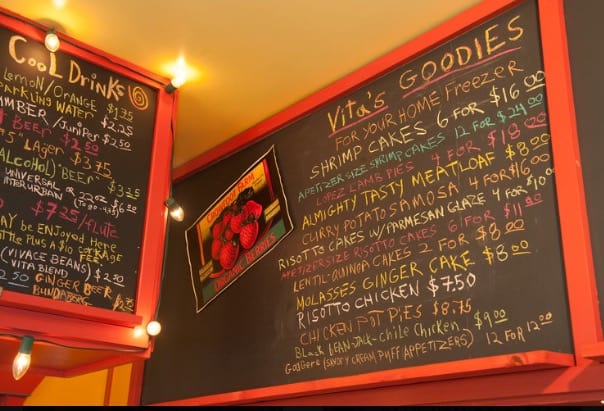 Cool Drinks
Lemon/Orange
Sparkling Water $1.75
Juniper $2.25
Beer $2.50
Lager $3.75
Alcohol) "Beer" $3.25
Universal
Interurban
$7.25/flute
be Enjoyed Here
Plus A $10 Corkage
(Vivace Beans) $2.50
Vita Blend
2.50 Ginger Beer
Bundaberg
Organic Berries
Vita's Goodies
For your Home Freezer
Shrimp Cakes 6 for $16.00
Appetizer size Shrimp Cakes 12 for $24.00
Lopez Lamb Pies 4 for $18.00
Almighty Tasty Meatloaf $8.00
Curry Potato Samosa 4 for $16.00
Risotto Cakes w/Parmesan Glaze 4 for $10.00
Appetizer size Risotto Cakes 6 for $11.00
Lentil-Quinoa Cakes 2 for $8.00
Molasses Ginger Cake $8.00
Risotto Chicken $7.50
Chicken Pot Pies $8.75
Black Bean-Jack-Chile Chicken $9.00
Gougere (Savory Cream Puff Appetizers) 12 for 12.00